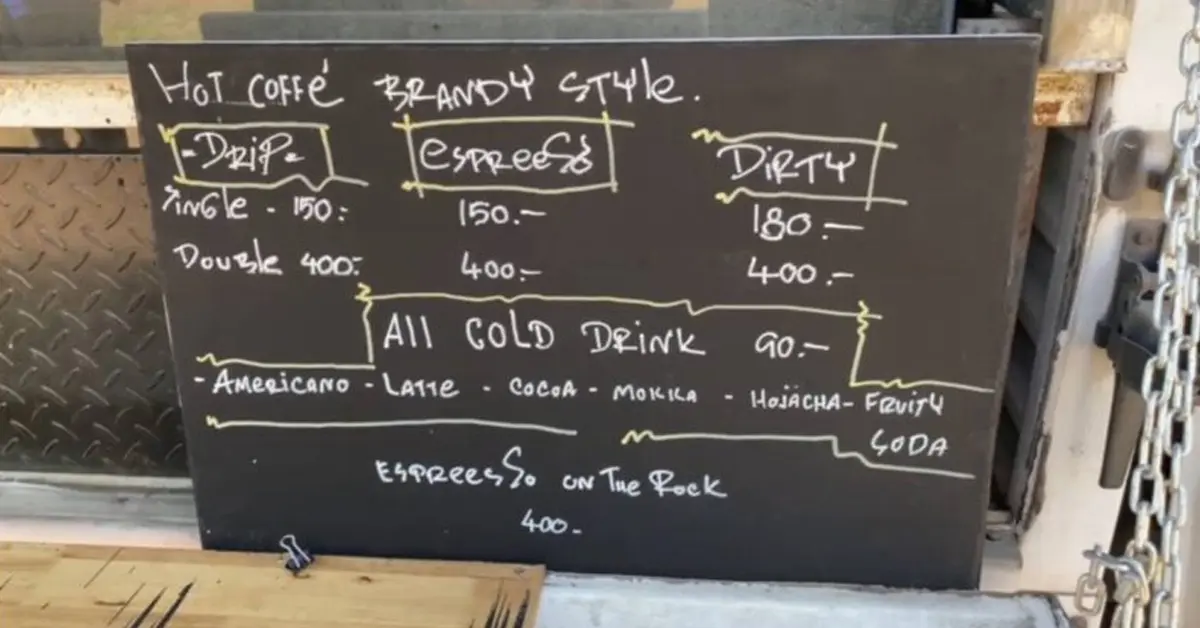 HOT COFFé BRANDY STYle.
-DRiP- espreeSSo DiRTY
SiNGle - 150:- 150.- 180.-
DouBle 400:- 400.- 400.-
All COLD DRiNK 90.-
- AMeRiCANO - LATTe - COCOA - MOKKA - HOJACHA - FRUiTY
SODA
ESPReeSSo ON THe ROCK
400-